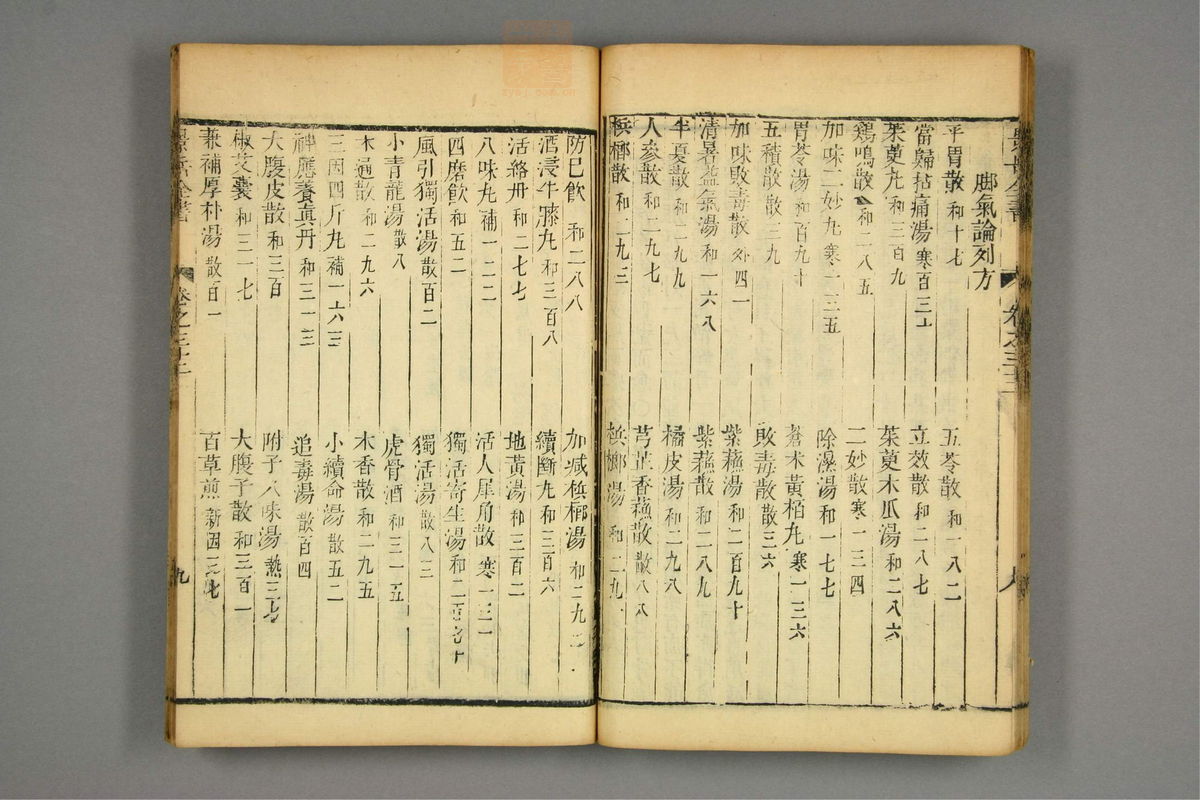 景岳全書 卷之三十二
脚氣論列方
平胃散 和十七 五苓散 和一八二
當歸拈痛湯 寒百三十 立效散 和二八七
茱萸丸 和三百九 茱萸木瓜湯 和二八六
鷄鳴散 和二八五 二妙散 寒一三四
加味二妙丸 寒一三五 除濕湯 和一七七
胃苓湯 和百九十 蒼朮黃栢丸 寒一三六
五積散 散三九 敗毒散 散三六
加味敗毒散 外四一 紫蘇湯 和二百九十
清暑益氣湯 和一六八 紫蘇散 和二八九
半夏散 和二九九 橘皮湯 和二九八
人參散 和二九七 芎芷香蘇散 散八八
檳榔散 和二九三 檳榔湯 和二九
防巳飲 和二八八 加减檳榔湯 和二九二
酒浸牛膝丸 和三百八 續斷丸 和三百六
活絡丹 和二七七 地黃湯 和三百二
八味丸 補一二二 活人犀角散 寒一三一
四磨飲 和五二 獨活寄生湯 和二百七十
風引獨活湯 散百二 獨活湯 散八三
小青龍湯 散八 虎骨酒 和三一五
木通散 和二九六 木香散 和二九五
三因四斤丸 補一六三 小續命湯 散五二
神應養眞丹 和三一三 追毒湯 散百四
大腹皮散 和三百 附子八味湯 熱三七
椒艾囊 和三一七 大腹子散 和三百一
兼補厚朴湯 散百一 百草煎 新因三七
景岳全書 卷之三十二 九